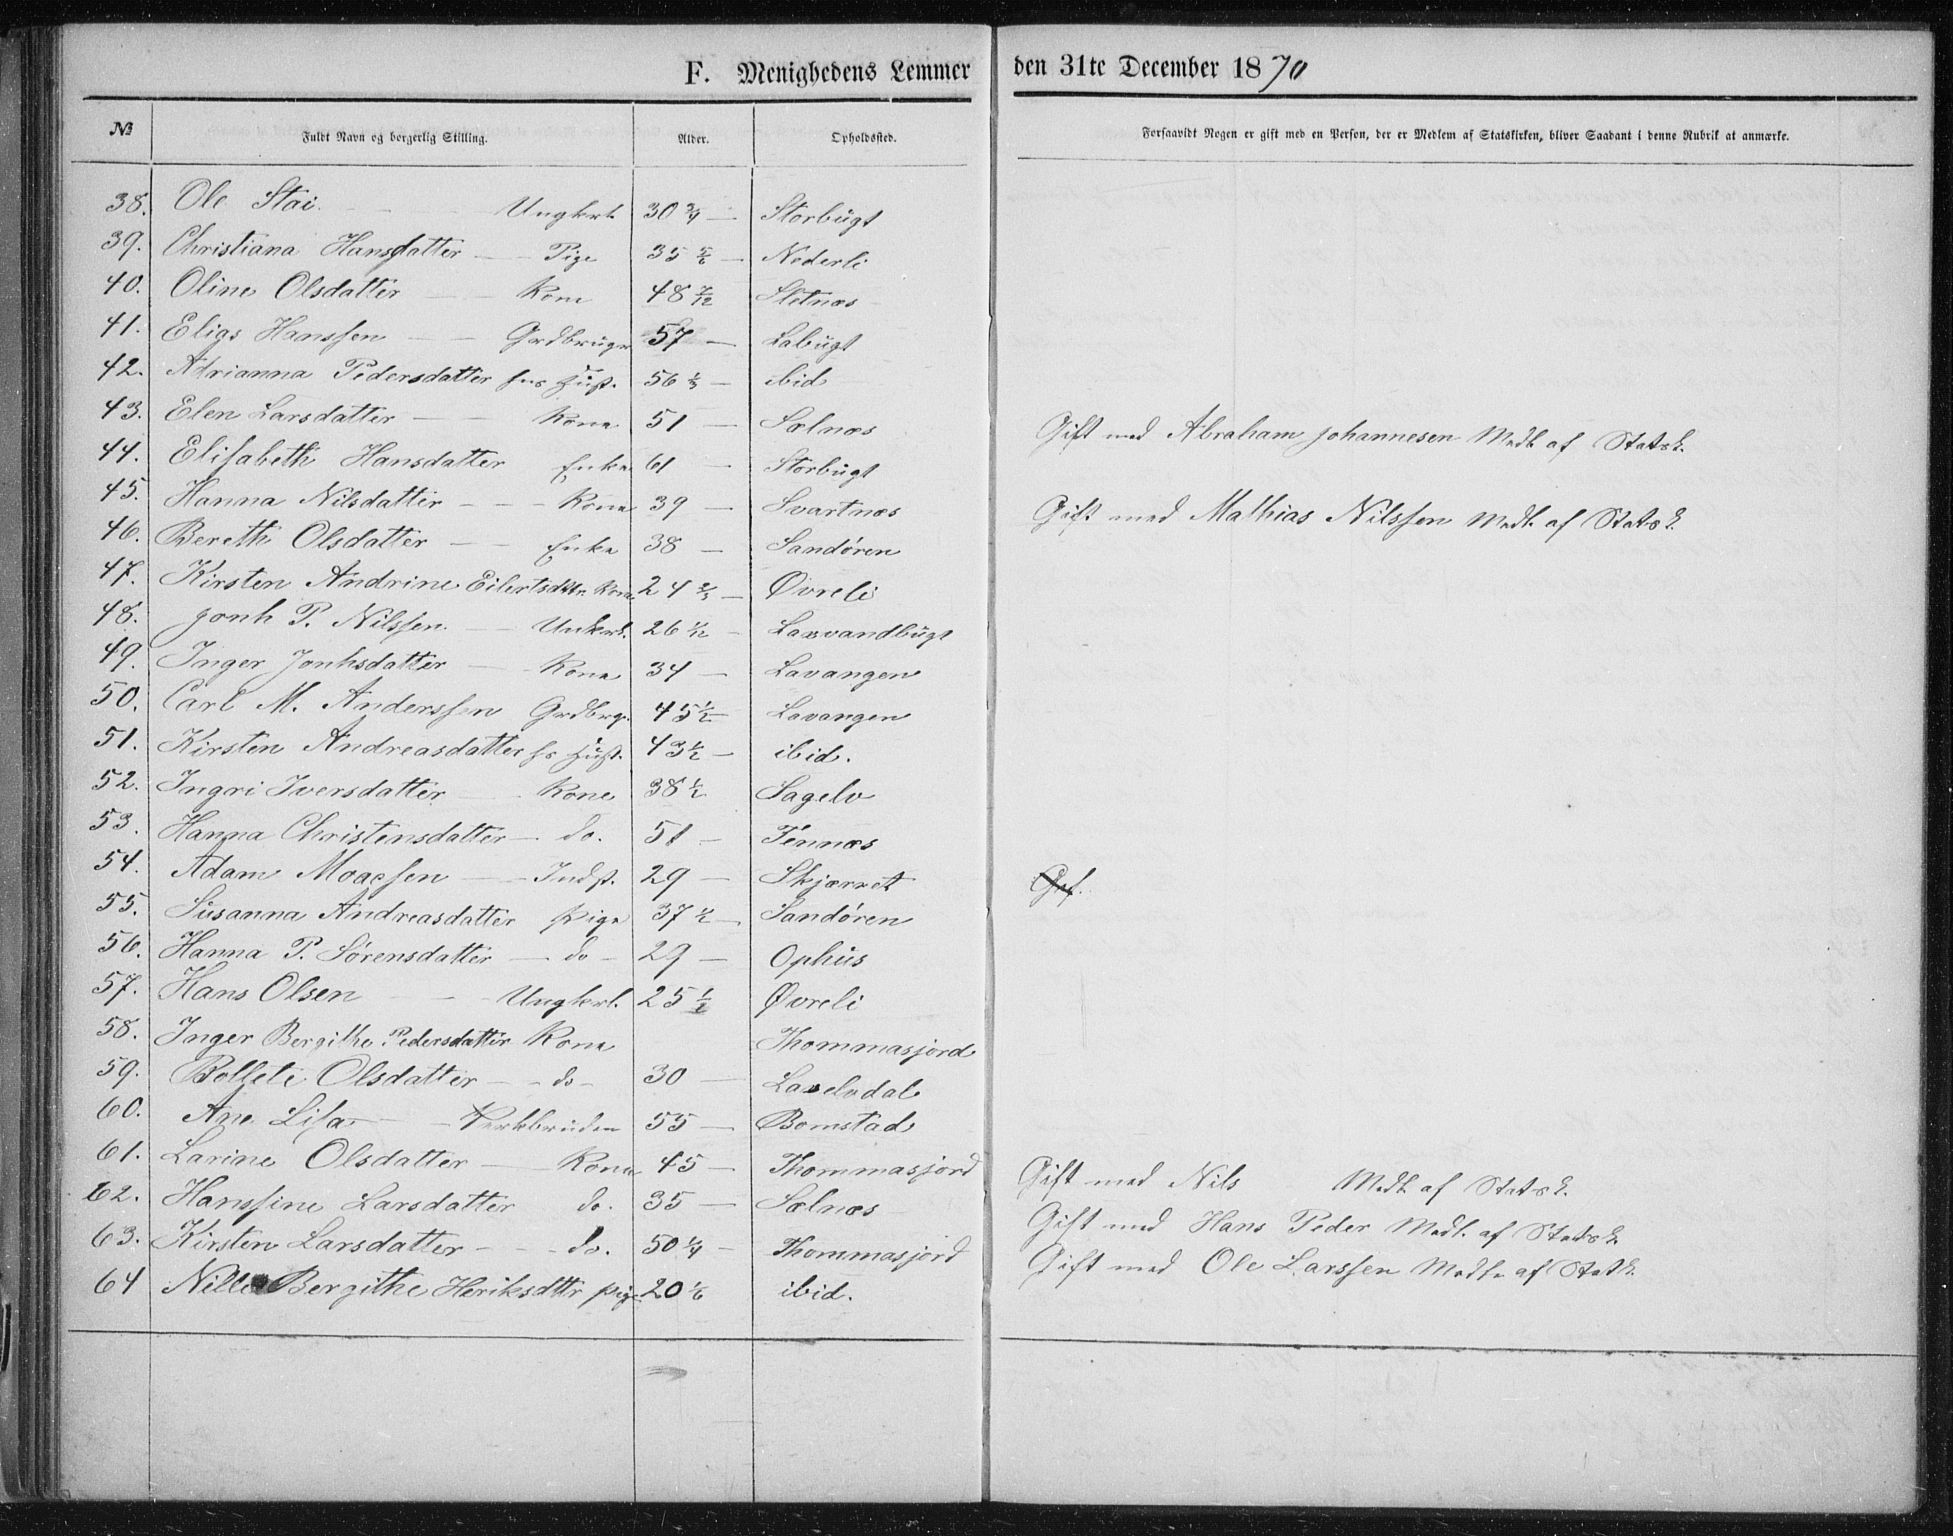 F. Menighedens Lemmer den 31te December 1870
№ Fuldt Navn og borgerlig Stilling. Alder. Opholdssted. Forsaavidt Nogen er gift med en Person, der er Medlem af Statskirken, bliver Saadant i denne Rubrik at anmærke.
38. Ole Stai. Ungkrl. 30 3/4 — Storbugt
39. Christiana Hansdatter — Pige 35 5/6 — Nederli
40. Oline Olsdatter — Kone 48 7/12 Sletnæs
41. Elias Hanssen — Grdbruger 57 — Labugt
42. Adrianna Pedersdatter hs Hust. 56 1/3 — ibid
43. Elen Larsdatter — Kone 51 — Sælnæs Gift med Abraham Johannesen Medl. af Statsk.
44. Elisabeth Hansdatter Enke 61 — Storbugt
45. Hanna Nilsdatter - - - Kone 39 — Svartnæs Gift med Mathias Nilssen Medl. af Statsk.
46. Bereth Olsdatter — Enke 38 — Sandøren
47. Kirsten Andrine Eilertsdttr. Kone 24 2/3 — Øvreli
48. Jonh P. Nilssen. — Unkrl. 26 1/12 - Laxvandbugt
49. Inger Jonhsdatter — Kone 34 — Lavangen
50. Carl M. Anderssen Grdbrg. 45 1/2 — Lavangen
51. Kirsten Andreasdatter hs Hust. 43 1/2 — ibid.
52. Ingri Iversdatter — Kone 38 1/2 Sagelv
53. Hanna Christensdatter — do. 51 - Tennæs
54. Adam Moaessen — Indst. 29 — Skjærret Gif.
55. Susanna Andreasdatter pige 37 1/2 — Sandøren
56. Hanna P. Sørensdatter — do - 29 — Ophus
57. Hans Olsen — Ungkrl. 25 1/2 Øvreli
58. Inger Bergithe Pedersdatter Kone Thommasjord
59. Bollete Olsdatter - - do - 30 — Laxelvdal
60. Ane Lisa — Verkbruden 55 — Bomstad
61. Larine Olsdatter — Kone 45 — Thommasjord Gift med Nils Medl. af Statsk.
62. Hanssine Larsdatter do. 35 — Sælnæs Gift med Hans Peder Medl. af Statsk.
63. Kirsten Larsdatter - - - do. 50 1/4 - Thommasjord Gift med Ole Larssen Medl. af Statk.
64 Nille Bergithe Henriksdttr pige 20 1/6 ibid.